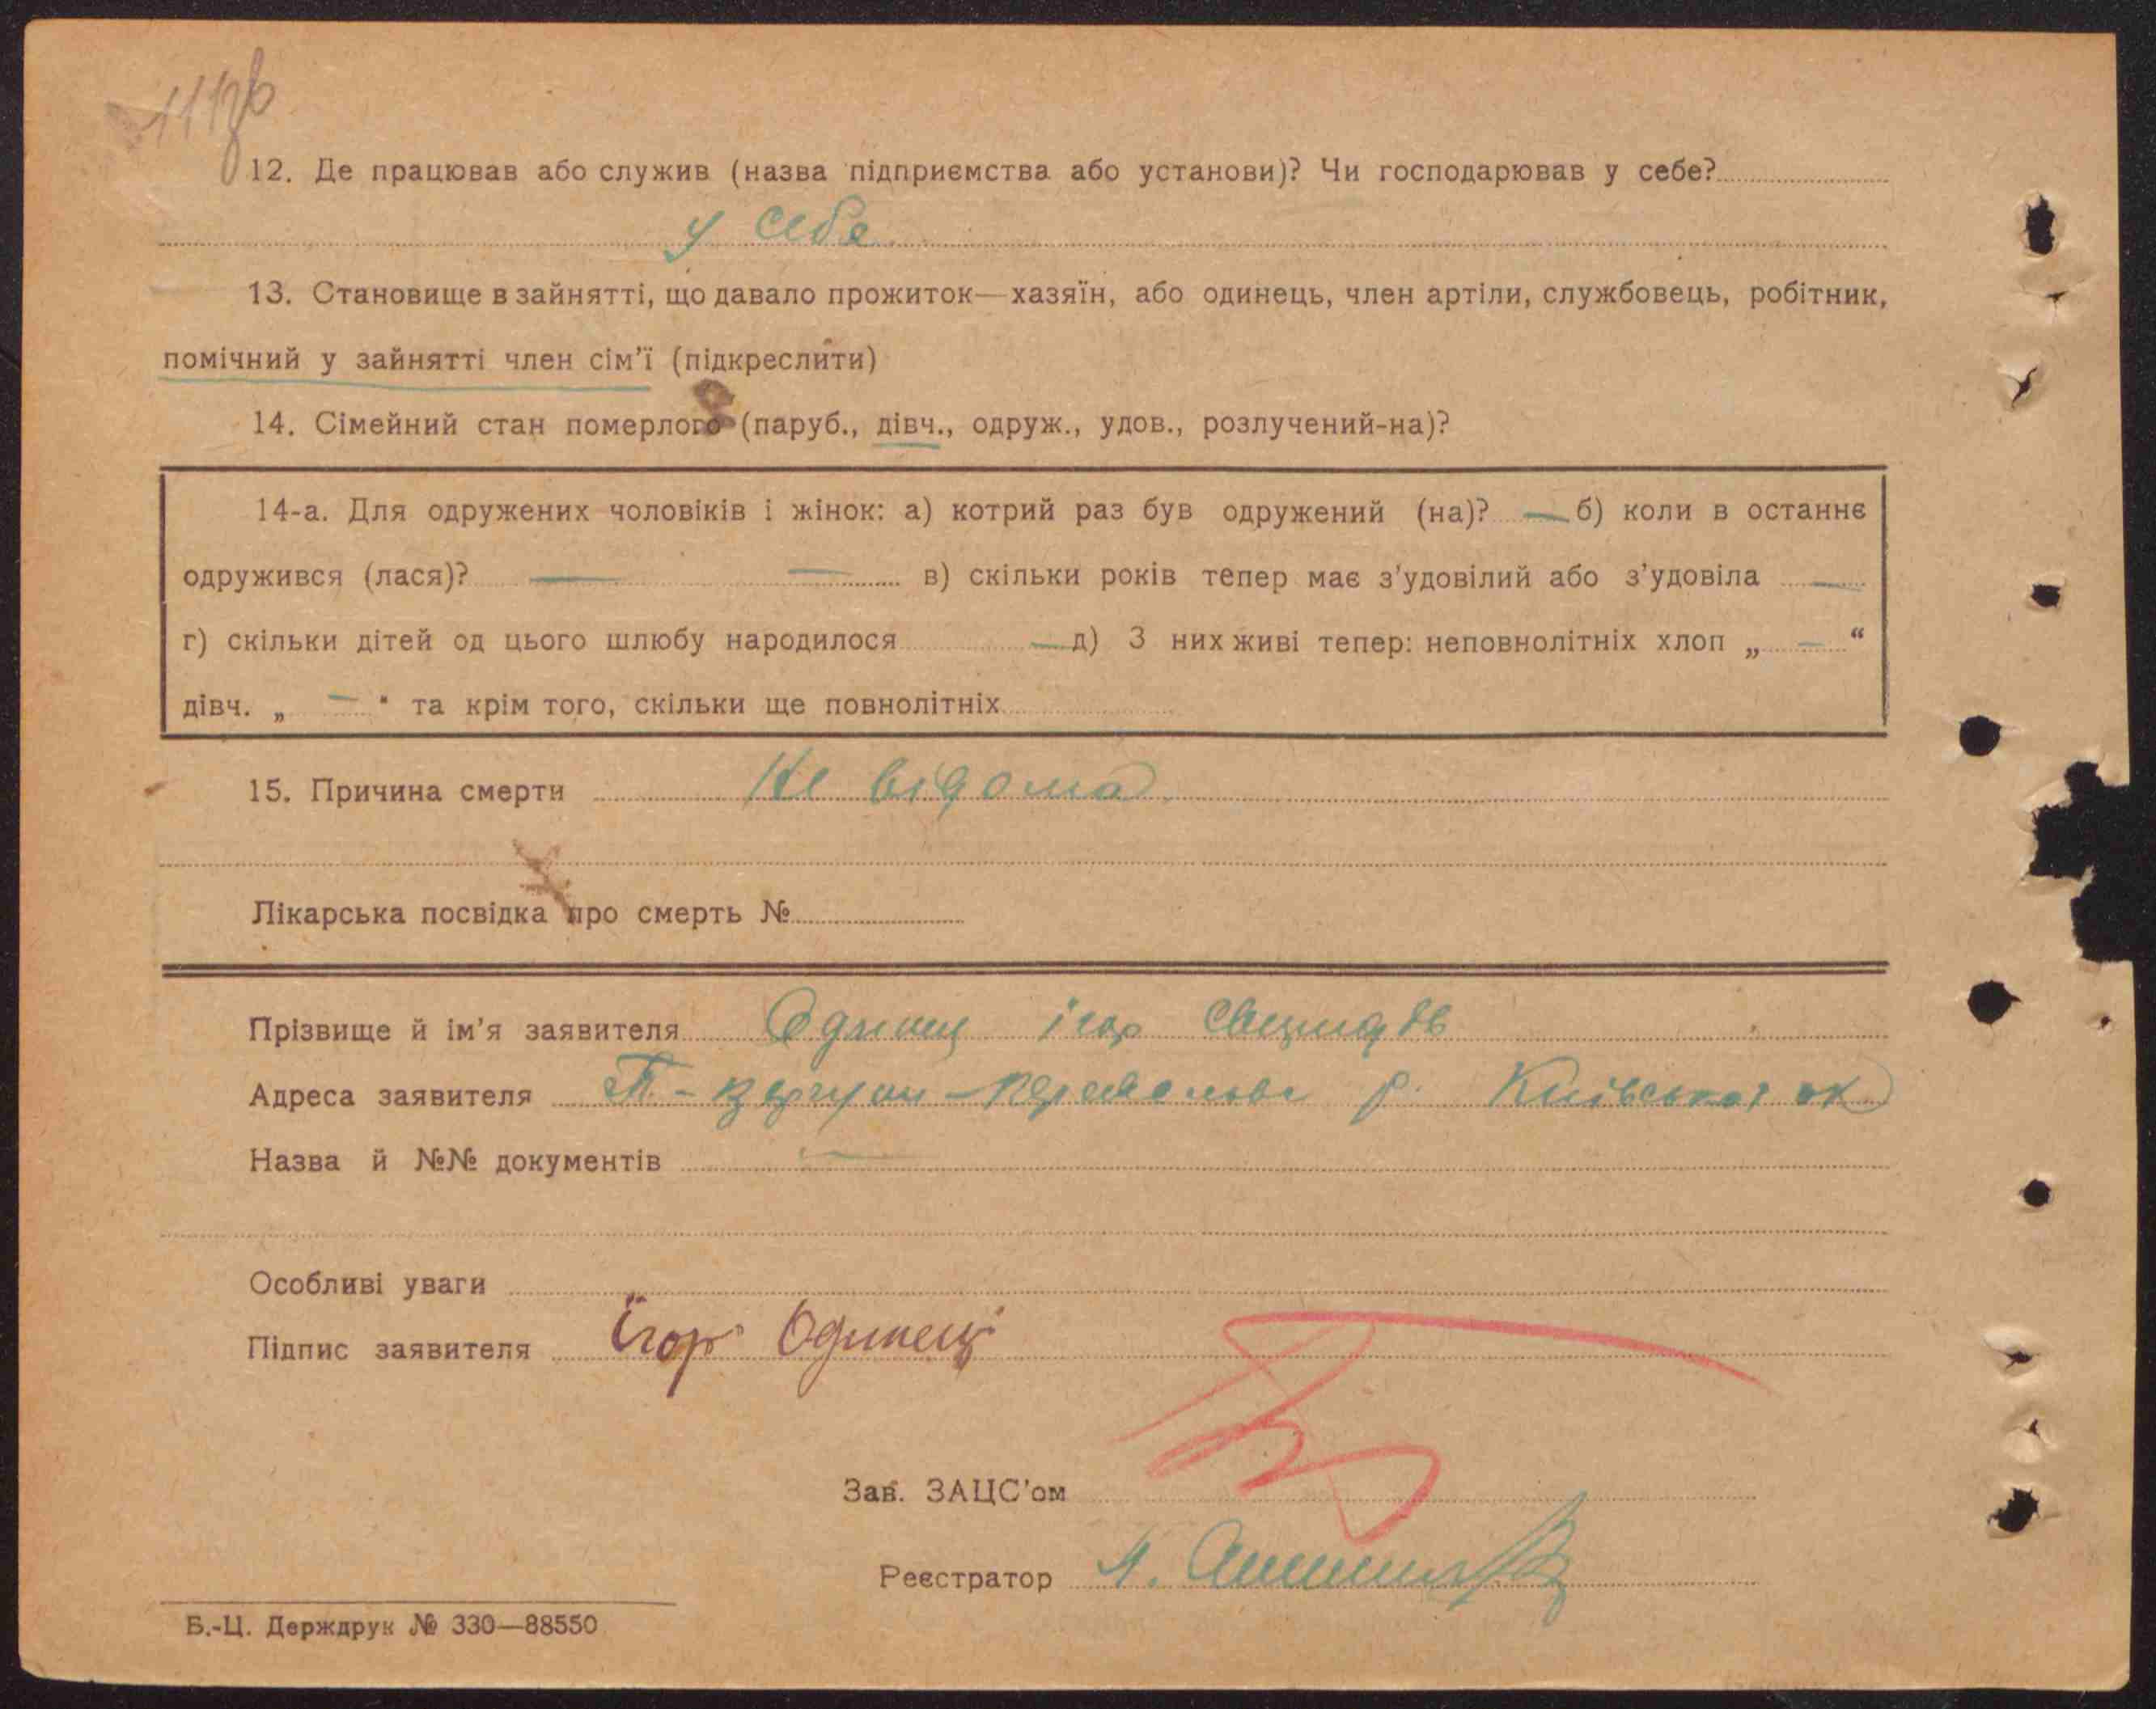 12. Де працював або служив (назва підприємства або установи)? Чи господарював у себе?
у себе
13. Становище в зайнятті, що давало прожиток—хазяїн, або одинець, член артіли, службовець, робітник,
помічний у зайнятті член сім'ї (підкреслити)
14. Сімейний стан померлого (паруб., дівч., одруж., удов., розлучений-на)?
14-а. Для одружених чоловіків і жінок: а) котрий раз був одружений (на)? — б) коли в останнє
одружився (лася)? — — в) скільки років тепер має з'удовілий або з'удовіла —
г) скільки дітей од цього шлюбу народилося — д) З них живі тепер: неповнолітніх хлоп „ — “
дівч. „ — " та крім того, скільки ще повнолітніх
15. Причина смерти Не відома
Лікарська посвідка про смерть №
Прізвище й ім'я заявителя Одинец ігор
Адреса заявителя р. Київської ок
Назва й №№ документів —
Особливі уваги
Підпис заявителя Ігор Одинець
Зав. ЗАЦС'ом
Реєстратор
Б.-Ц. Держдрук № 330—88550